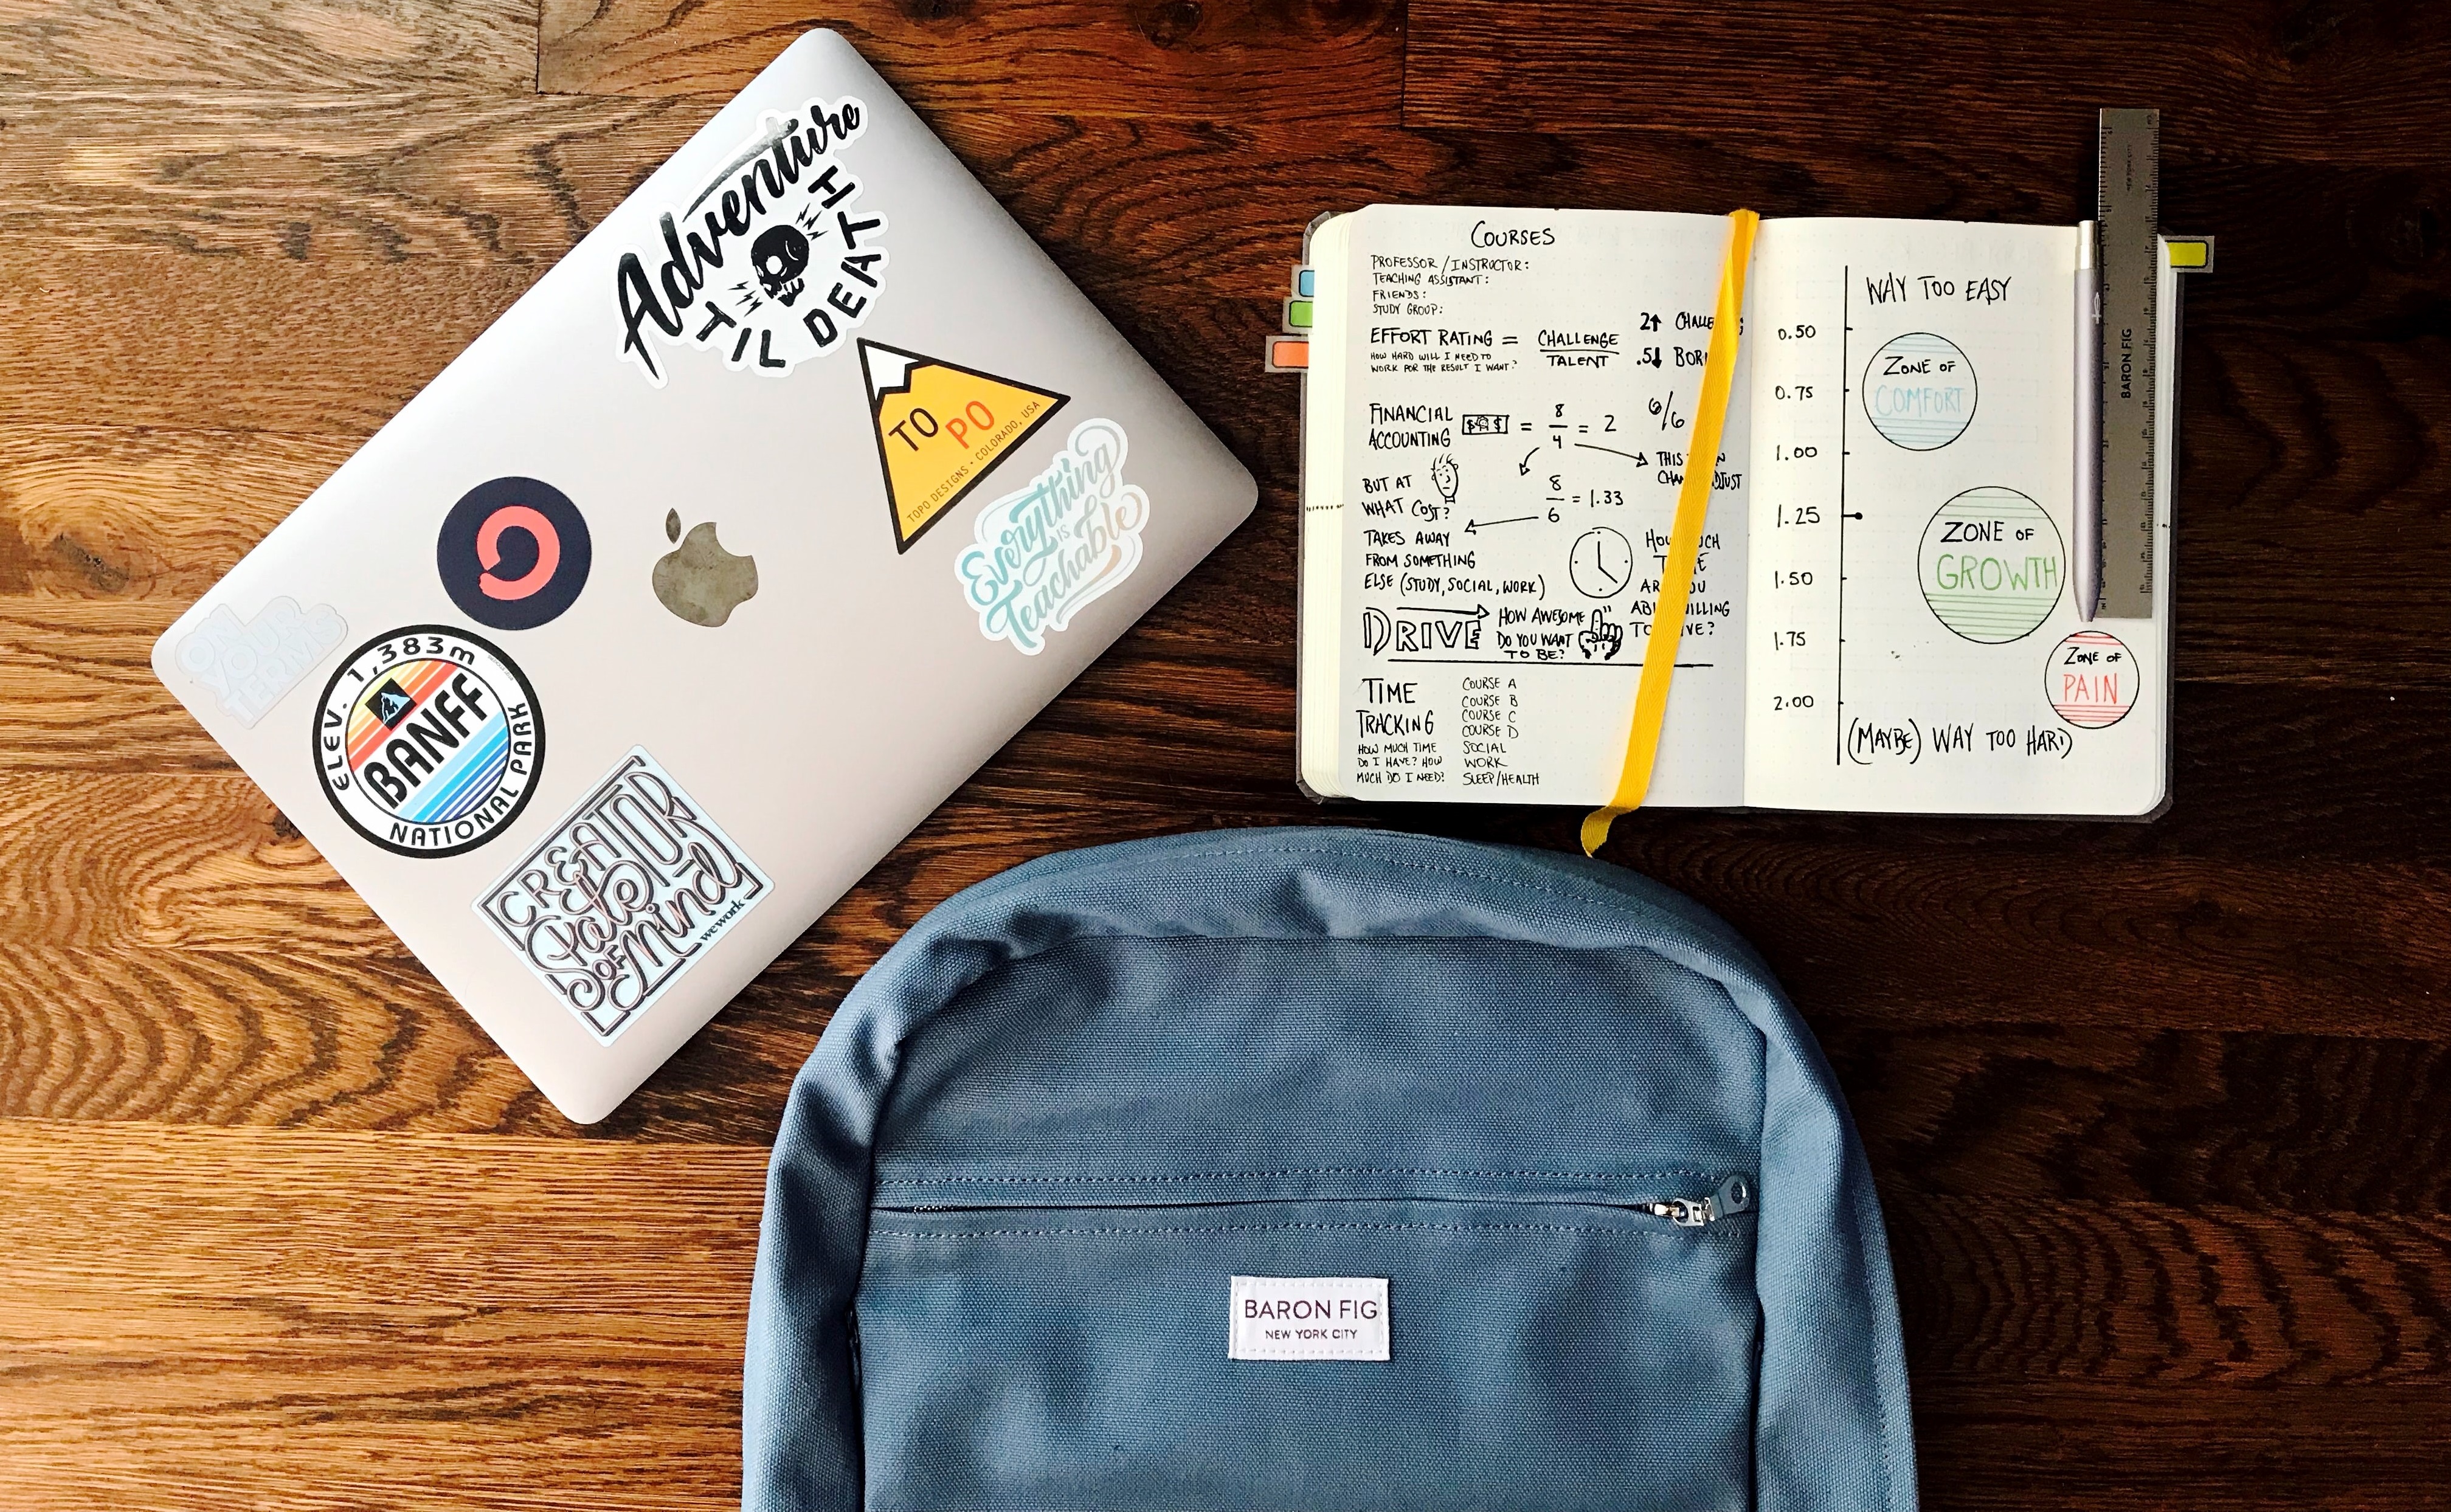 Adventure
'TIL DEATH
TO PO
TOPO DESIGNS • COLORADO, USA
Everything
IS
Teachable
ON
YOUR
TERMS
ELEV. 1,383m
BANFF
NATIONAL PARK
CREATOR
State
OF Mind
wework
COURSES
PROFESSOR / INSTRUCTOR:
TEACHING ASSISTANT:
FRIENDS:
STUDY GROUP:
EFFORT RATING = CHALLENGE
TALENT
HOW HARD WILL I NEED TO
WORK FOR THE RESULT I WANT?
2↑
.5↓
FINANCIAL
ACCOUNTING
$ $ = 8/4 = 2
6/6
BUT AT
WHAT COST?
8/6 = 1.33
THIS
TAKES AWAY
FROM SOMETHING
ELSE (STUDY, SOCIAL, WORK)
DRIVE
HOW AWESOME
DO YOU WANT
TO BE?
TIME
TRACKING
HOW MUCH TIME
DO I HAVE? HOW
MUCH DO I NEED?
COURSE A
COURSE B
COURSE C
COURSE D
SOCIAL
WORK
SLEEP/HEALTH
WAY TOO EASY
0.50
ZONE OF
COMFORT
0.75
1.00
1.25
ZONE OF
GROWTH
1.50
1.75
ZONE OF
PAIN
2.00
(MAYBE) WAY TOO HARD
BARON FIG
BARON FIG
NEW YORK CITY